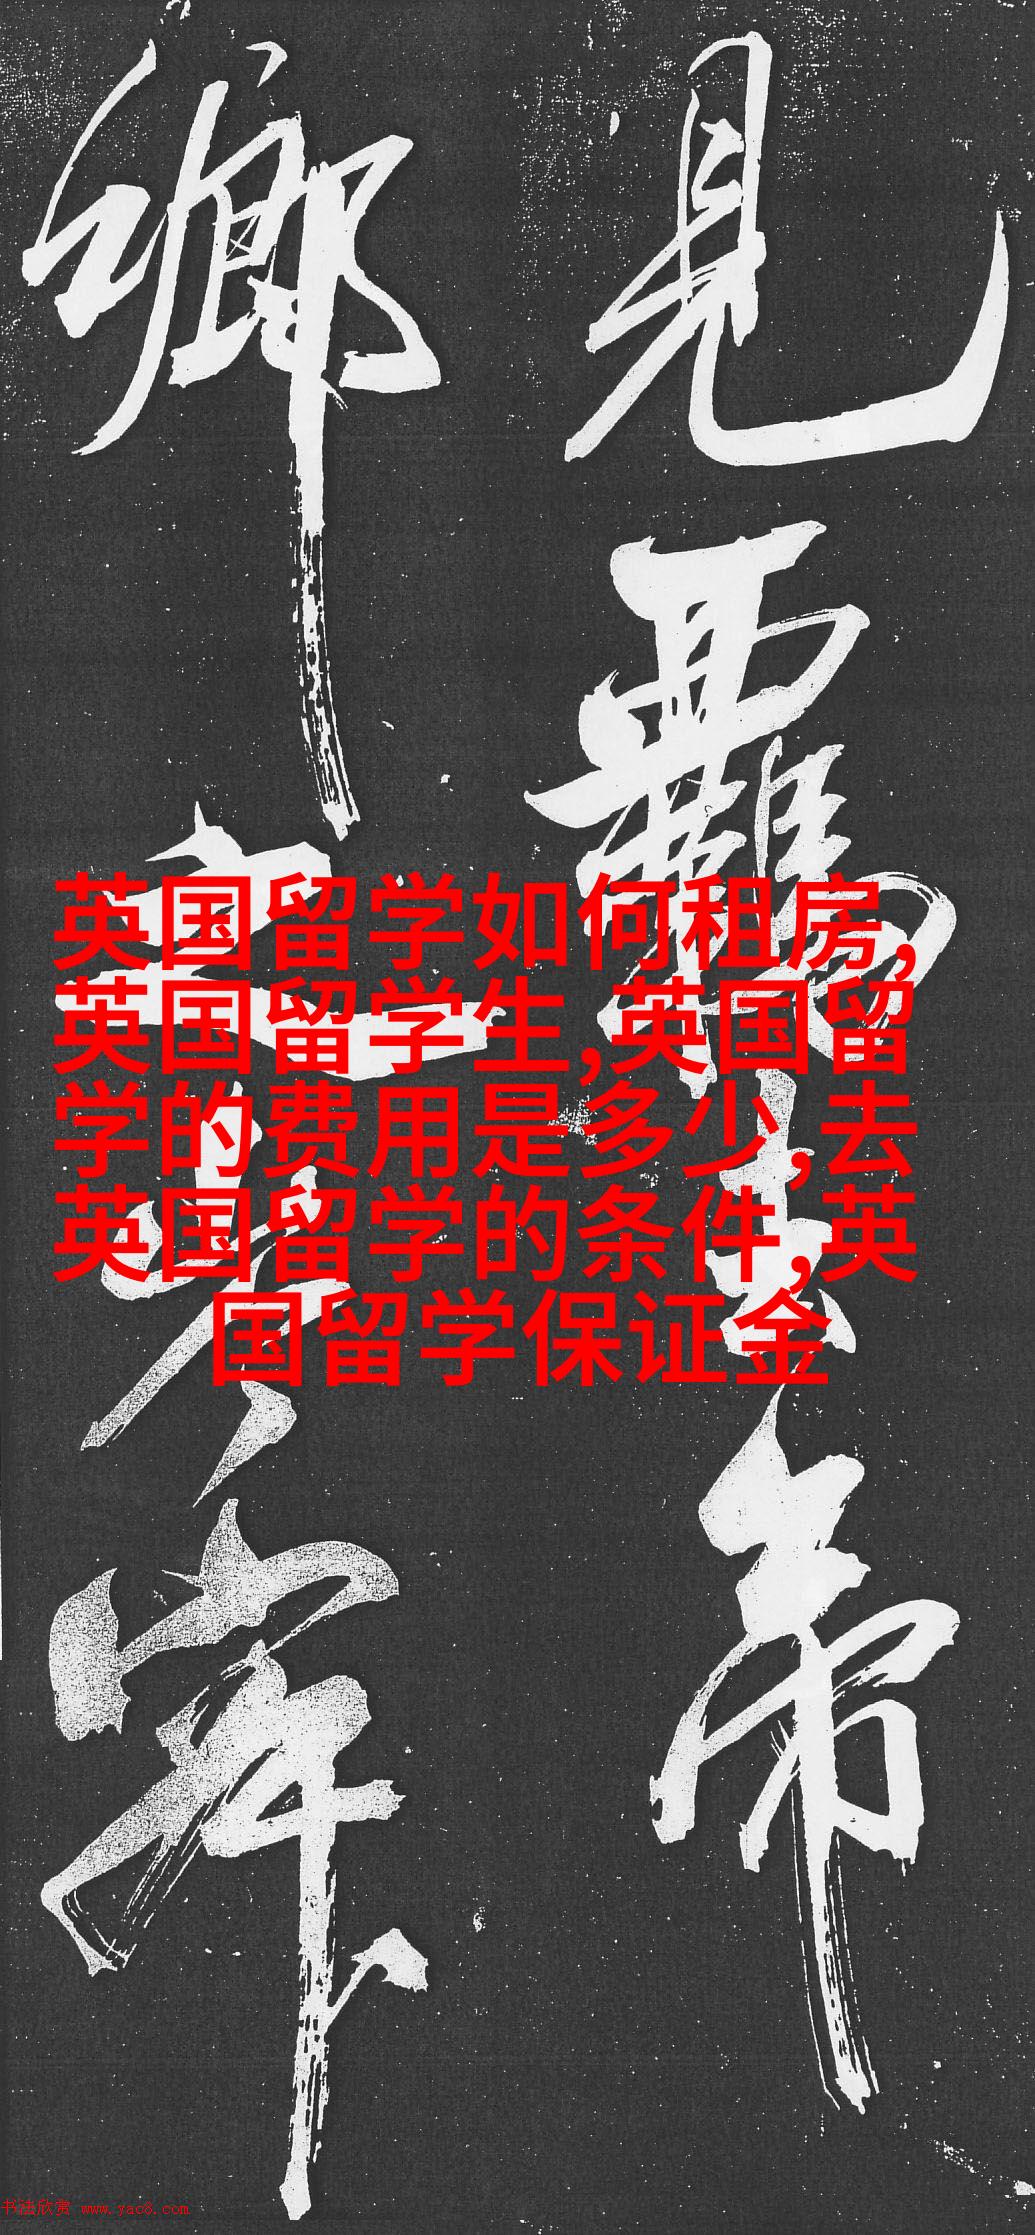 英国留学如何租房,
英国留学生,英国留
学的费用是多少,去
英国留学的条件,英
国留学保证金
見羈
帝
鄉
书法欣赏 www.yac8.com